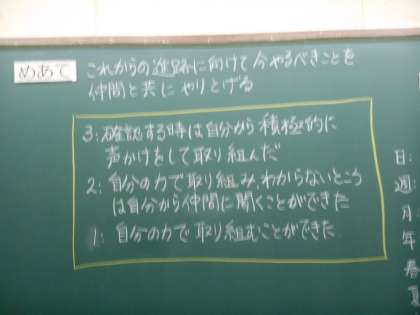 めあて
これからの進路に向けて今やるべきことを
仲間と共にやりとげる
3:確認する時は自分から積極的に
声かけをして取り組んだ
2:自分の力で取り組み、わからないところ
は自分から仲間に聞くことができた
1:自分の力で取り組むことができた
日:
週:
月:
年
春
夏